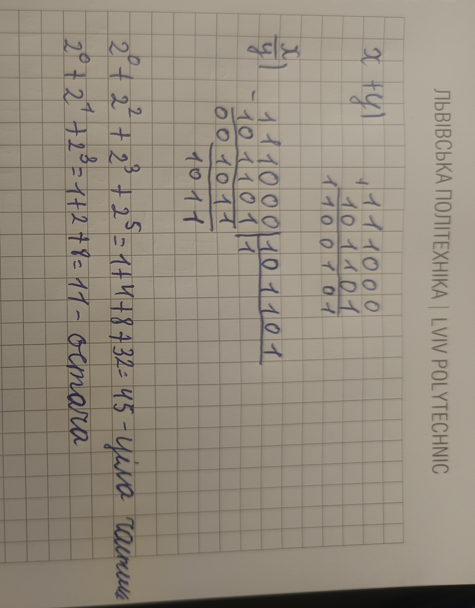 ЛЬВІВСЬКА ПОЛІТЕХНІКА | LVIV POLYTECHNIC
x + y)
+ 111000
101101
1100101
x/y)
- 111000 | 101101
101101 | 1
001011
1011
2⁰ + 2² + 2³ + 2⁵ = 1 + 4 + 8 + 32 = 45 - ціла частина
2⁰ + 2¹ + 2³ = 1 + 2 + 8 = 11 - остача